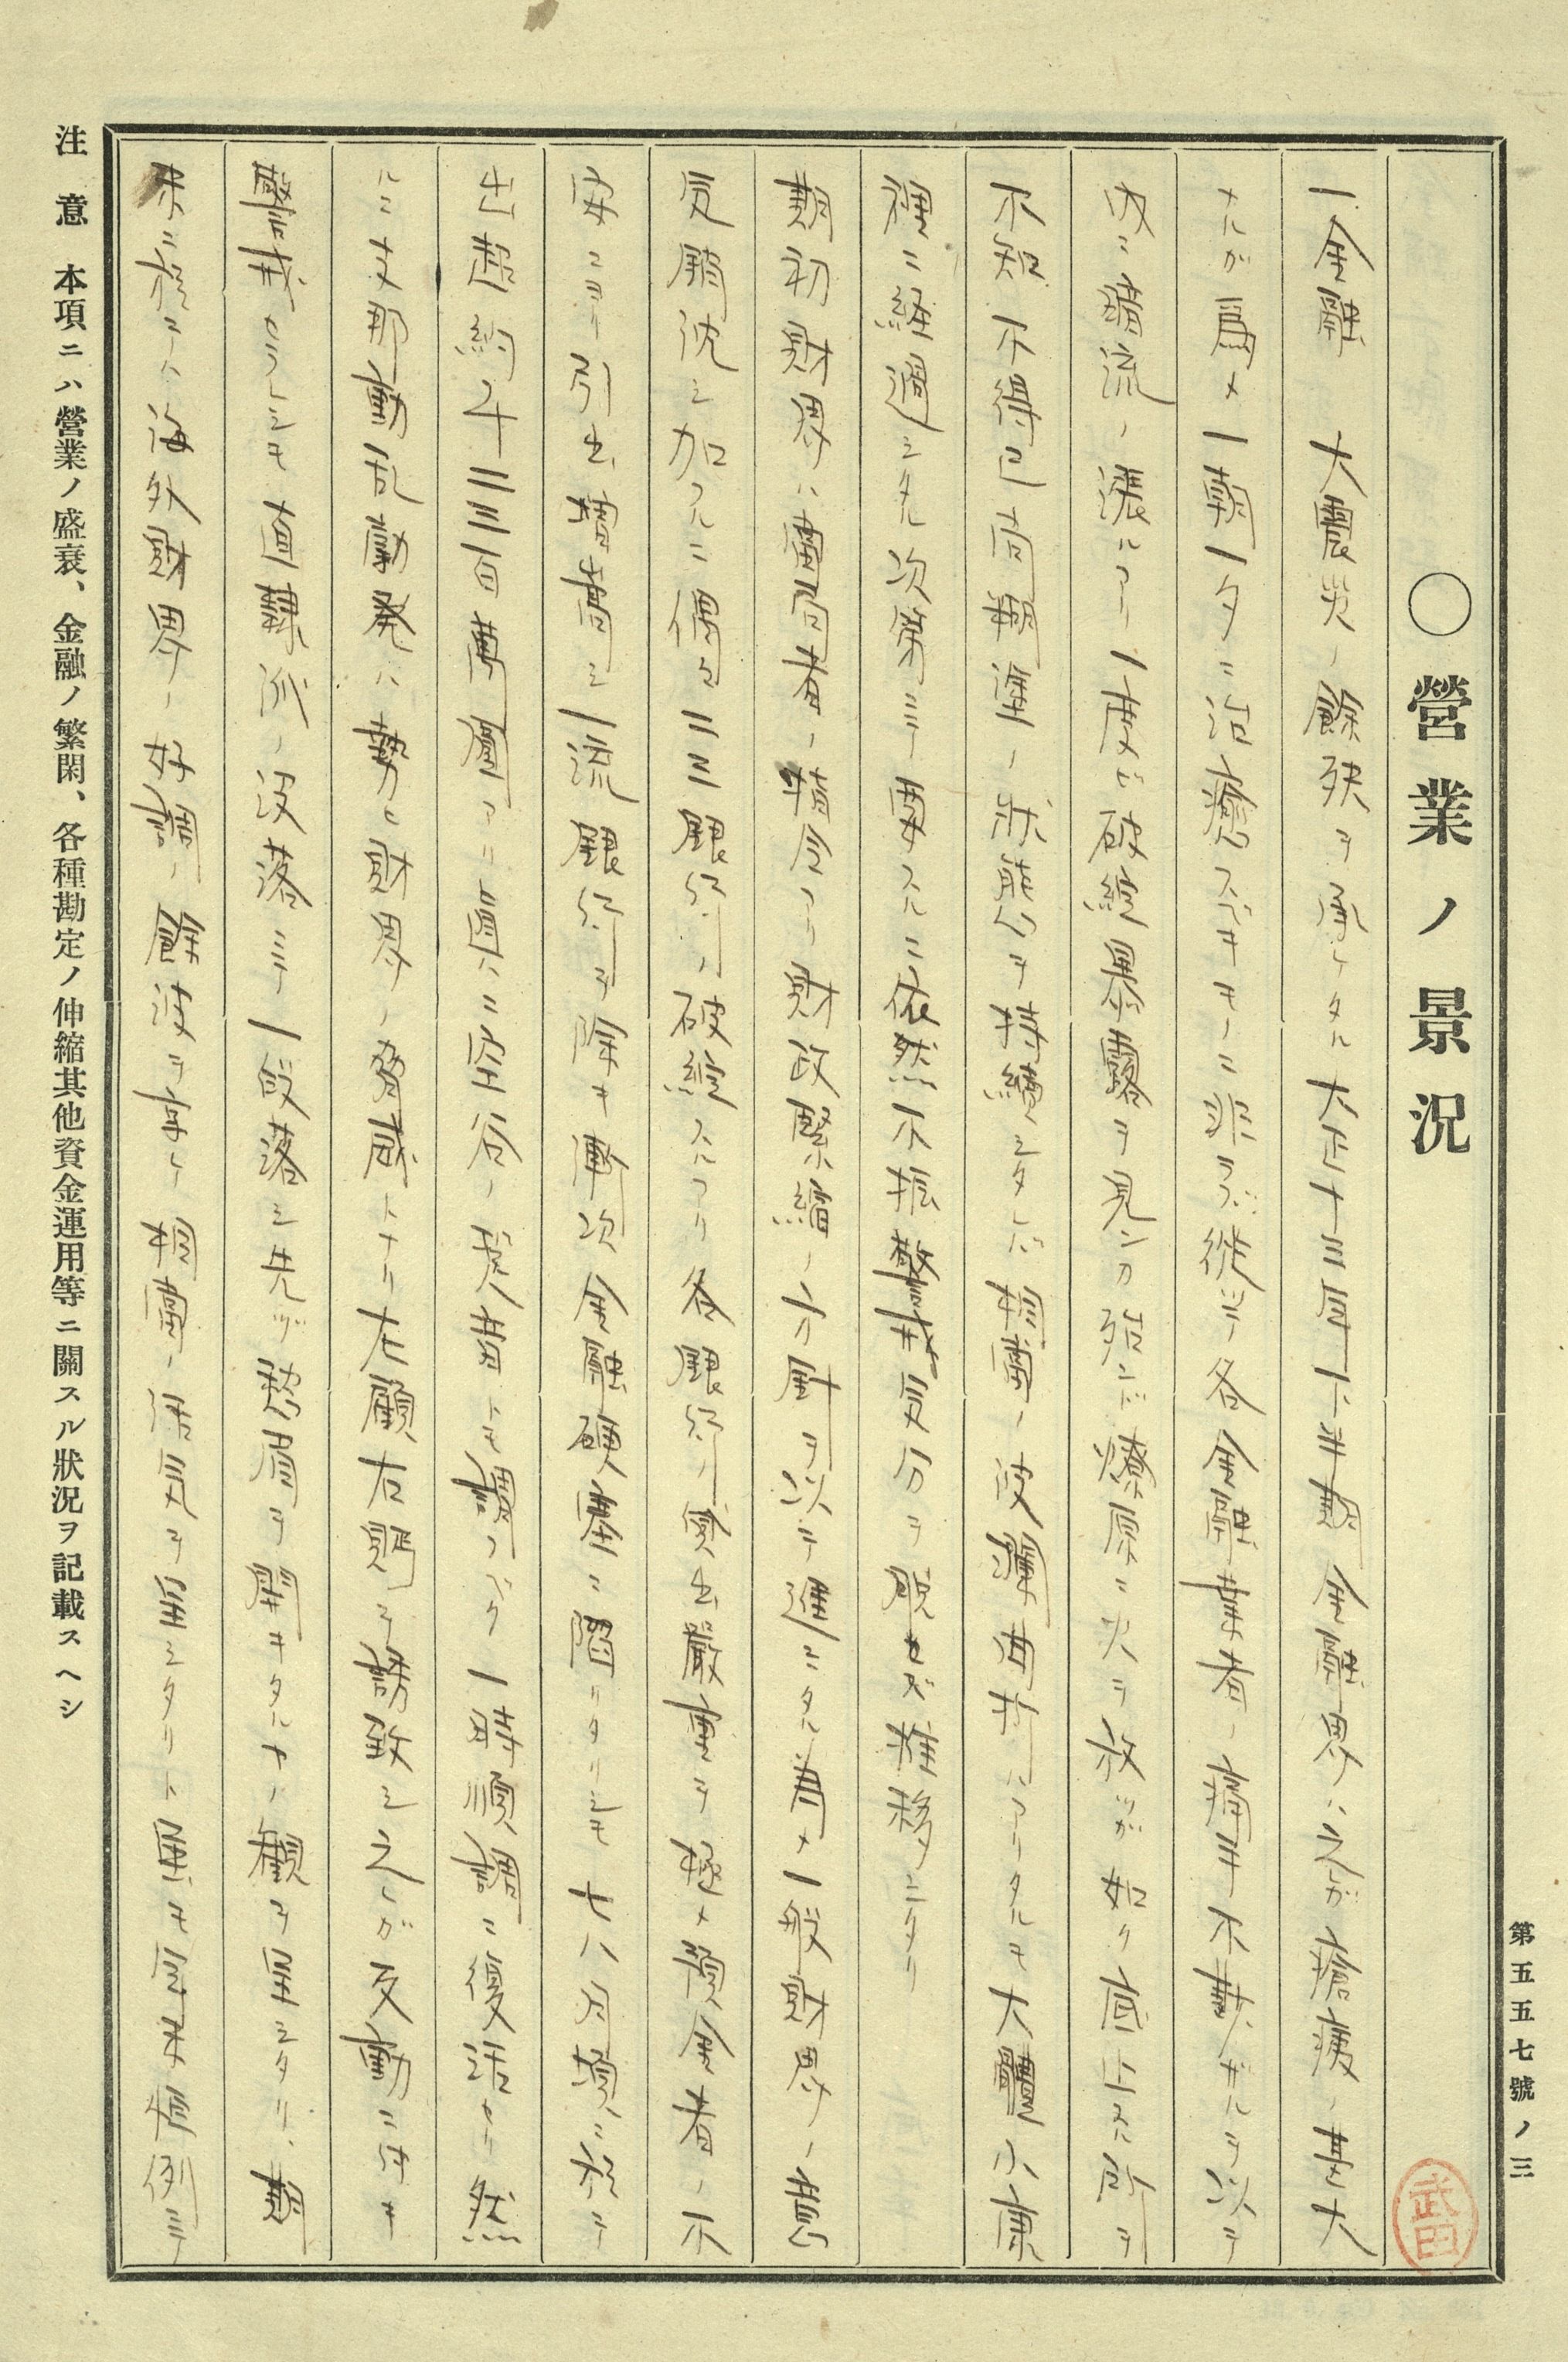 第五五七號ノ三
○營業ノ景況
武田
一金融 大震災ノ餘殃ヲ承ケタル大正十三年下半期金融界ハ之ガ瘡痍ノ甚大
ナルガ爲メ一朝一夕ニ治癒スベキモノニ非ラズ從ツテ各金融業者ノ痛手不尠ザルヲ以テ
内ニ流ノ漲ルアリ一度ビ破綻暴露ヲ見ンカ恰モ燎原ニ火ヲ放ツガ如ク底止スル所ヲ
不知不得已苟翔進ノ狀態ヲ持續シタレバ相當ノ波瀾曲折ハアリタルモ大體小康
裡ニ経過シタル次第ニテ要スルニ依然不振警戒気分ヲ脱セズ推移シタリ
期初財界ハ當局者ノ指令アリ財政緊縮ノ方針ヲ以テ進ミタル為メ一般財界ノ意
気銷沈シ加フルニ偶々二三銀行ノ破綻スルアリ各銀行ノ貸出嚴重ヲ極メ預金者ノ不
安ニヨリ引出増嵩シ一流銀行ヲ除キ漸次金融硬塞ニ陥リタリシモ七八月頃ニ於テ
出超約千二三百萬圓アリ真ニ空谷ノ跫音トモ謂フベク一時順調ニ復活セリ然
ルニ支那動乱勃発ハ勢ヒ財界ノ脅威トナリ左顧右眄ヲ誘致シ之レガ反動ニ付キ
警戒セラレシモ直隷派ノ没落ニテ一段落シ先ヅ愁眉ヲ開キタルカノ観ヲ呈シタリ、期
末ニ於テハ海外財界ノ好調ノ餘波ヲ享ケ相當ノ活気ヲ呈シタリト雖モ年末恒例ニテ
注意 本項ニハ營業ノ盛衰、金融ノ繁閑、各種勘定ノ伸縮其他資金運用等ニ關スル狀況ヲ記載スヘシ